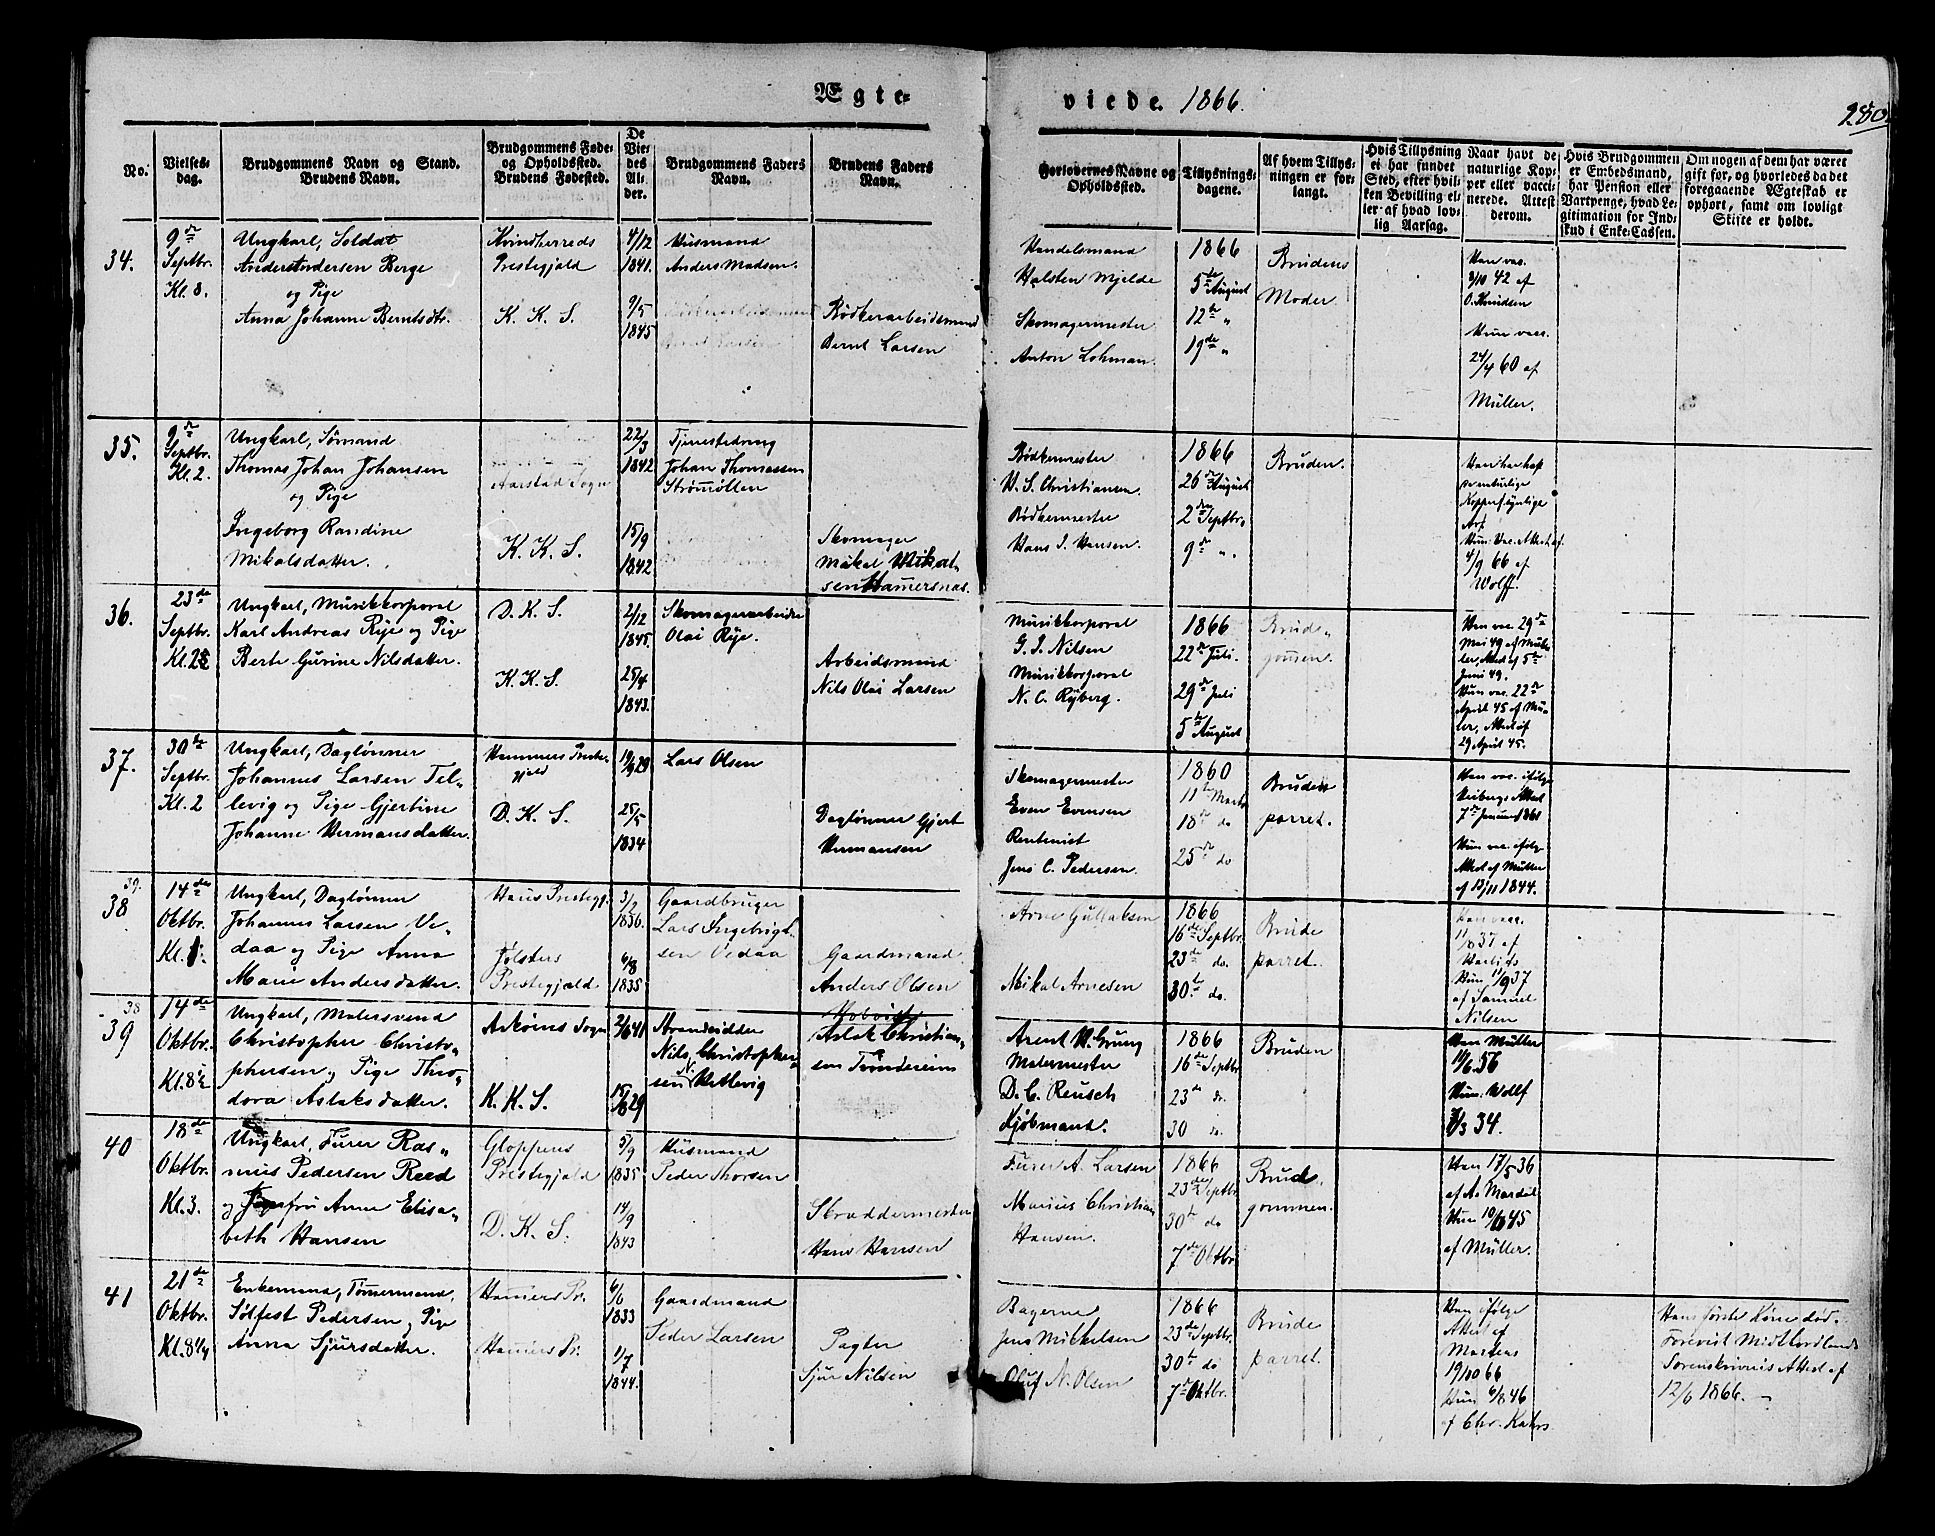 Ægte=
viede. 1866.
280.
No.
Vielses-
dag.
Brudgommens Navn og Stand.
Brudens Navn.
Brudgommens Føde-
og Opholdssted.
Brudens Fødested.
De
Vie-
des
Al-
der.
Brudgommens Faders
Navn.
Brudens Faders
Navn.
Forlovernes Navne og
Opholdssted.
Tillysnings-
dagene.
Af hvem Tillys-
ningen er for-
langt.
Hvis Tillysning
ei har fundet
Sted, efter hvil-
ken Bevilling el-
ler af hvad lov-
lig Aarsag.
Naar havt de
naturlige Kop-
per eller vacci-
nerede. Attest
derom.
Hvis Brudgommen
er Embedsmand,
har Pension eller
Vartpenge, hvad Le-
gitimation for Ind-
skud i Enke-Cassen.
Om nogen af dem har været
gift før, og hvorledes da det
foregaaende Ægteskab er
ophørt, samt om lovligt
Skifte er holdt.
34.
9de
Septbr.
Kl. 8.
Ungkarl, Soldat
Anders Andersen Berge
og Pige
Anna Johanne Berntsdtr.
Kvindherreds
Prestegjald
K. K. S.
4/12
1841.
9/5
1845
Husmand
Anders Madsen.
Bødkerarbeidsmand
Bernt Larsen
Handelsmand
Halsten Mjelde
Skomagermester
Anton Lohman.
1866
5te August
12te "
19de "
Brudens
Moder.
Han vac.
3/10 42 af
O. Knudsen
Hun vacc.
24/4 60 af
Müller.
35.
9de
Septbr.
Kl. 2.
Ungkarl, Sømand
Thomas Johan Johansen
og Pige
Ingeborg Randine
Mikalsdatter.
Aarstad Sogn
K. K. S.
22/3
1842
15/9
1842.
Tjenestedreng
Johan Thomassen
Strømøllen
Skomager
Mikal Mikal-
sen Hamersnas.
Bødkermester
W. S. Christiansen.
Bødkermester
Hans J. Hansen.
1866
26de August
2den Septbr.
9de ".
Bruden.
Han har haft
naturlige
Kopper, synlige
Ar.
Hun vac. Attest af
4/9 66 af
Wolff.
36.
23de
Septbr.
Kl. 2½
Ungkarl, Musikkorporal
Karl Andreas Rye og Pige
Berte Gurine Nilsdatter.
D. K. S.
K. K. S.
2/12
1845.
25/4
1843.
Skomagerarbeider
Olai Rye.
Arbeidsmand
Nils Olai Larsen
Musikkorporal
G. J. Nilsen
Musikkorporal
N. C. Ryberg.
1866
22de Juli.
29de Juli
5te August
Brud-
gommen.
Han vac. 29de
Mai 49 af Mül-
ler, Attest af 5te
Juni 49.
Hun vac. 22de
April 45 af Mül-
ler, Attest af
29 April 45.
37.
30te
Septbr.
Kl. 2
Ungkarl, Daglønner
Johannes Larsen Tel-
levig og Pige Gjertine
Johanne Hermansdatter.
Hammers Preste-
gjald
D. K. S.
19/9 29
25/5
1834
Lars Olsen
Daglønner Gjert
Hermansen
Skomagermester
Even Evensen
Rentenist
Jens C. Pedersen.
1860
11te Marts
18de do
25de do
Brude
parret.
Han vac. ifølge
Heibergs Attest
7de Januar 1861
Hun vac. ifølge
Attest af Müller
af 13/11 1844.
39.
38
14de
Oktbr.
Kl. 1.
Ungkarl, Dagløнner
Johannes Larsen Ve-
daa og Pige Anna
Marie Andersdatter.
Haus Prestegj.
Jølsters
Prestegjald
3/2
1836.
6/8
1835
Gaardbruger
Lars Ingebrigt-
sen Vedaa
Gaardmand
Anders Olsen
Arne Gullaksen
Mikal Arnesen
1866
16de Septbr.
23de do.
30te do.
Brude
parret.
Han vacc.
11/8 37 af
Hun 11/9 37
af Samuel
Nilsen
38
39
14de
Oktbr.
Kl. 8½
Ungkarl, Malersvend
Christopher Christo-
phersen og Pige Theo-
dora Aslaksdatter.
Askøens Sogn
K. K. S.
2/6 41
15/8 29
Strandsidder
Nils Christopher-
sen N. Hetlevig
Aslak Christian-
sen Trondereim
Arent W. Grung
Malermester
D. C. Reusch
Kjøbmand.
1866
16de Septbr
23de do.
30 do.
Bruden
Han Müller
14/6 56
Hun. Wolff
7/3 34.
40
18de
Oktbr.
Kl. 3.
Ungkarl, Furer Ras-
mus Pedersen Reed
og Jomfru Anne Elisa-
beth Hansen
Gloppens
Prestegjald
D. K. S.
5/9
1835
14/9
1843
Husmand
Peder Thorsen
Skreddermester
Hans Hansen
Furer A. Larsen
Marius Christian
Hansen.
1866
23de Septbr
30te do
7de Oktbr.
Brud-
gommen.
Han 17/5 36
af A. Mardal
Hun 10/6 45
af Müller.
41
21de
Oktbr.
Kl. 8¼
Enkemand, Tømmermand.
Sølfest Pedersen og Pige
Anna Sjursdatter.
Hamers Pr.
Hamers Pr.
6/6
1833
1/7
1844.
Gaardmand
Peder Larsen
Pagter
Sjur Nilsen
Bagerne
Jens Mikkelsen
Oluf N. Olsen
1866
23de Septbr.
30te do
7de Oktbr.
Brude
parret.
Han ifølge
Attest af
Martens
19/10 66
Hun 6/8 46
af Chr. Kahrs
Hans første Kone død.
Forevist Midthordlands
Sorenskriveris Attest af
12/6 1866. –